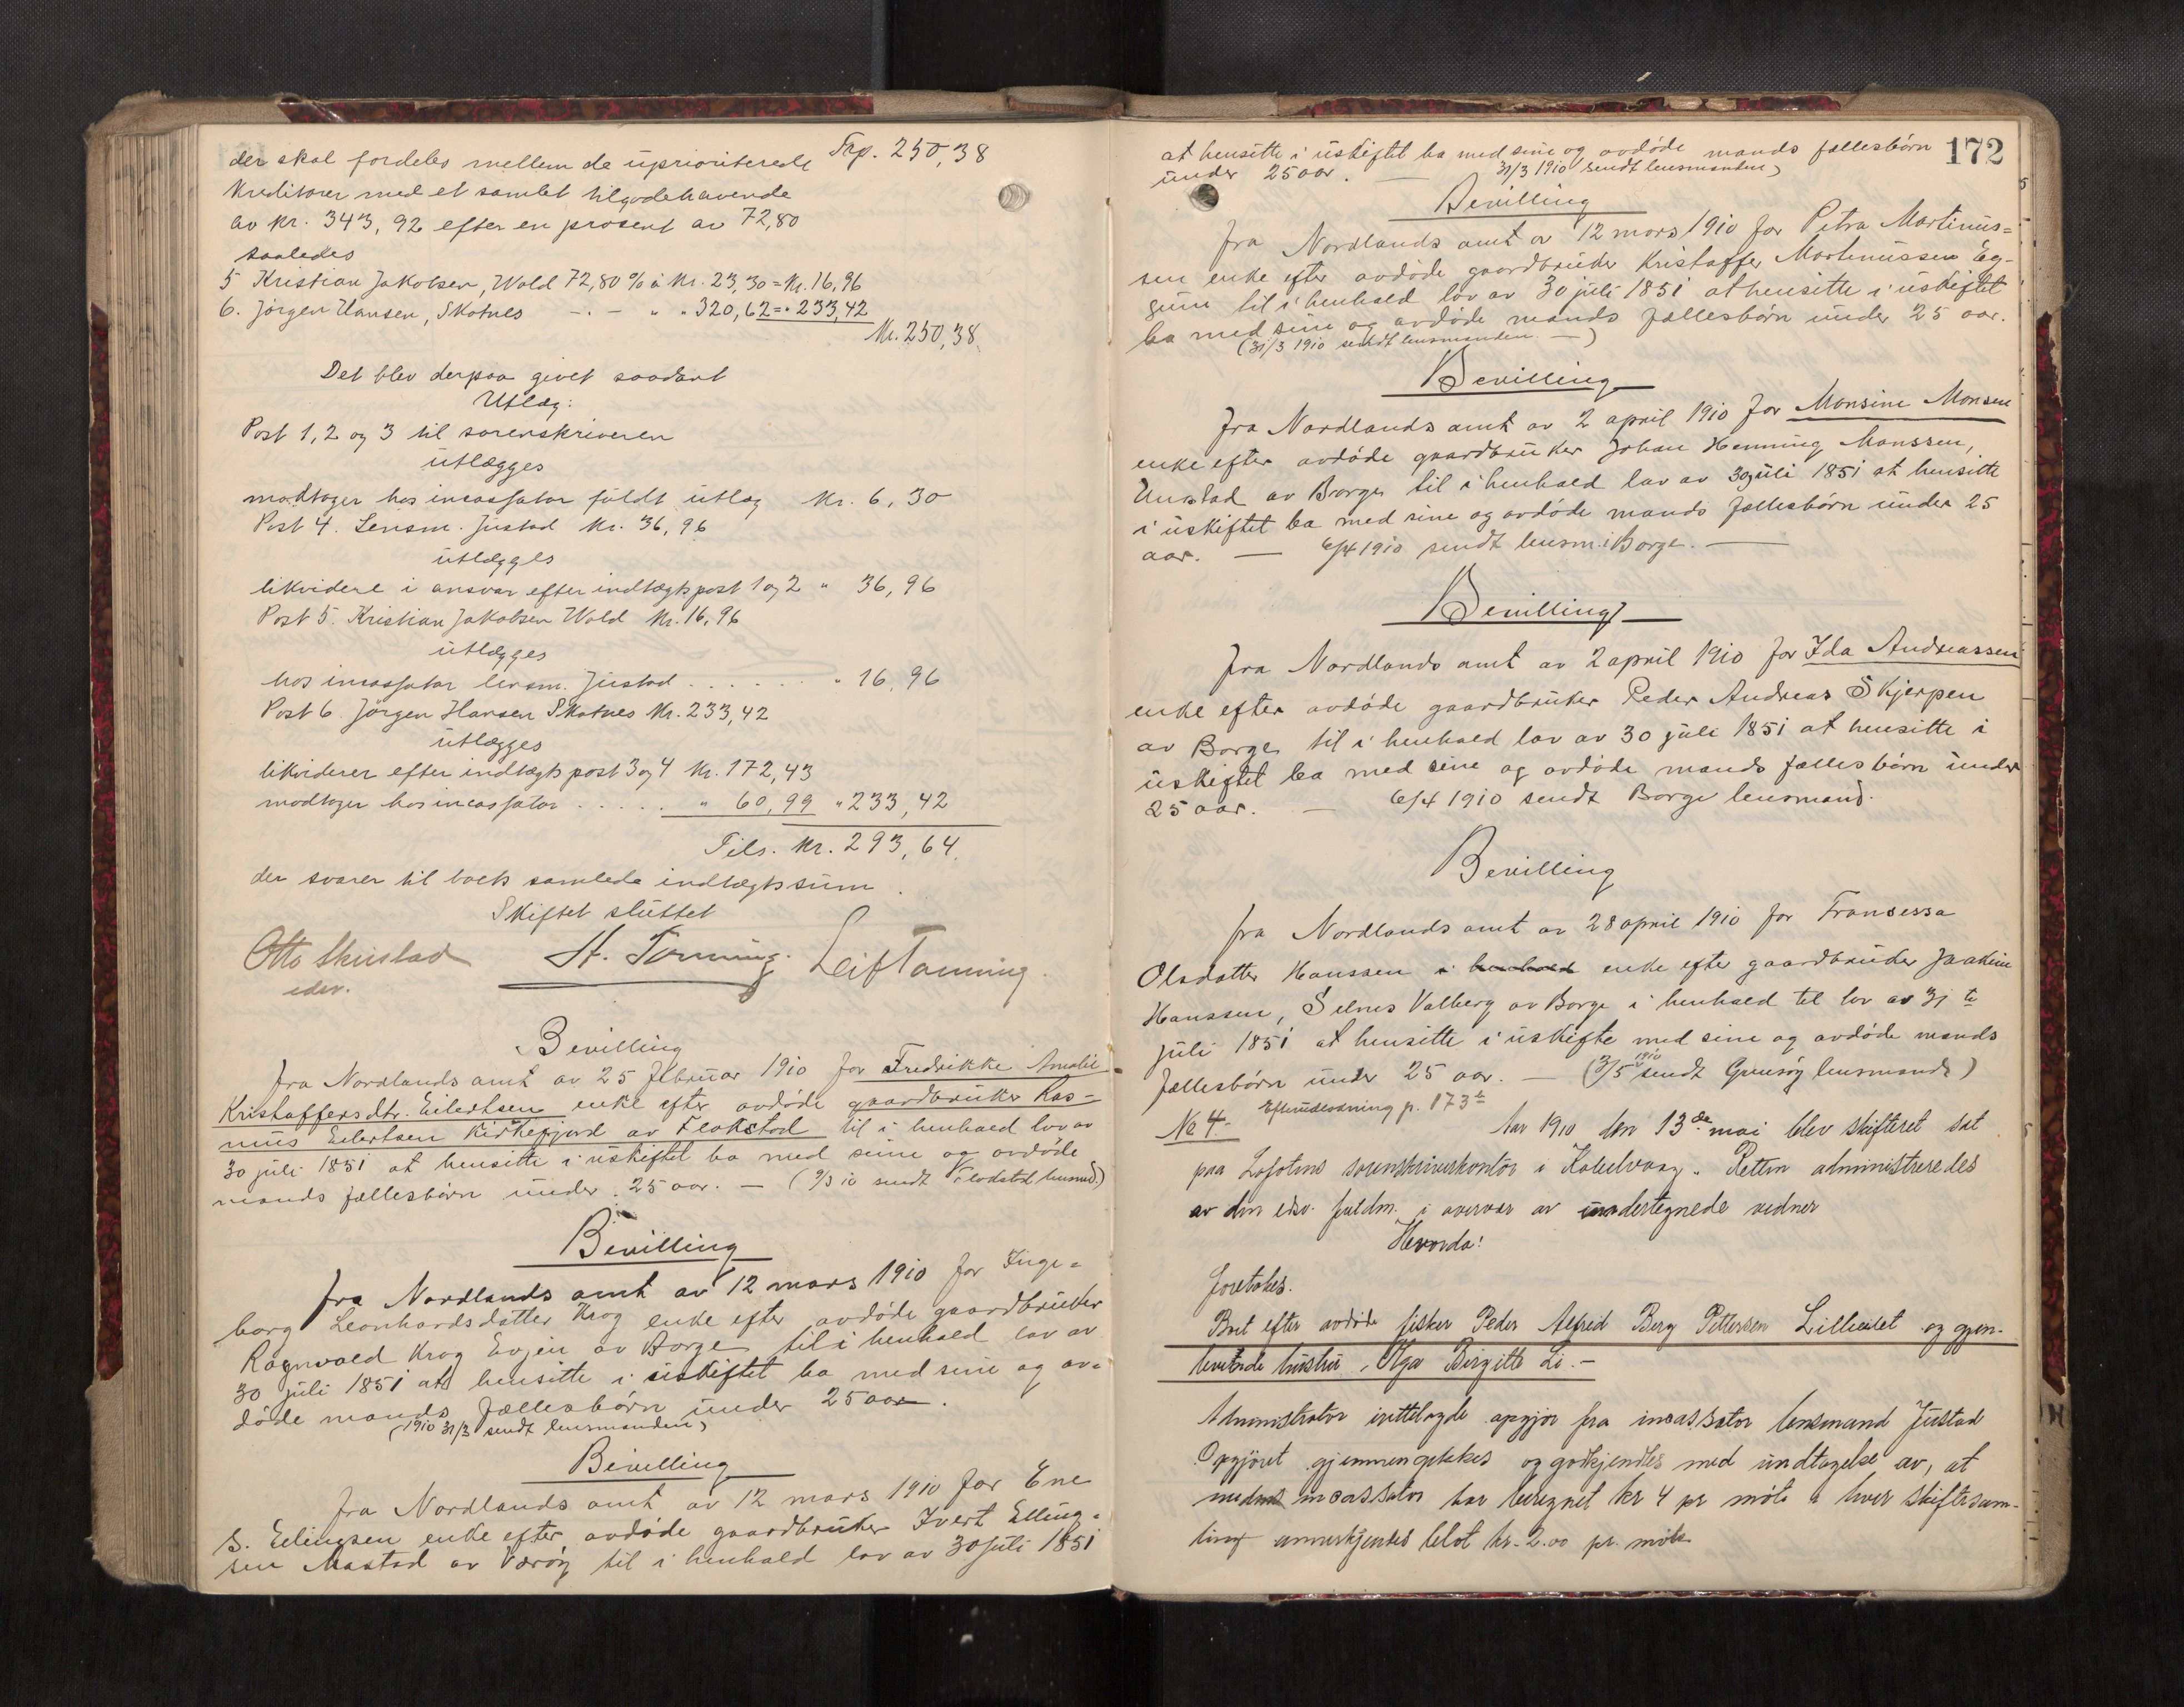 der skal fordeles mellem de uprioriterede Trp. 250,38
kreditorer med et samlet tilgodehavende
av kr. 343,92 efter en prosent av 72,80
saaledes
5 Kristian Jakobsen, Wold 72,80 % à kr. 23,30 = kr. 16,96
6. Jörgen Hansen, Skotnes -.- " " 320,62 = " 233,42
Kr. 250,38
Det blev derpaa givet saadant
Utlæg:
Post 1, 2 og 3 til sorenskriveren
utlægges
modtager hos incassator fuldt utlæg kr. 6,30
Post 4. Lensm. Justad kr. 36,96
utlægges
likvidere i ansvar efter indtægtspost 1 og 2 " 36,96
Post 5. Kristian Jakobsen Wold kr. 16,96
utlægges
hos incassator lensm. Justad . . . . . . " 16,96
Post 6. Jörgen Hansen Skotnes kr. 233,42
utlægges
likviderer efter indtægtspost 3 og 4 kr. 172,43
modtager hos incassator . . . . . " 60,99 " 233,42
Tils. kr. 293,64
der svarer til boets samlede indtægtssum.
Skiftet sluttet
Otto Skustad H. Tönning. Leif Tönning.
edsv.
Bevilling
fra Nordlands amt av 25 februar 1910 for Fredrikke Amalie
Kristoffersdtr. Eilertsen enke efter avdöde gaardbruker Ras-
mus Eilertsen Kirkefjord av Flakstad til i henhold lov av
30 juli 1851 at hensitte i uskiftet bo med sine og avdöde
mands fællesbörn under 25 aar. — (9/3 10 sendt Flakstad lensmd.)
Bevilling
fra Nordlands amt av 12 mars 1910 for Inge-
borg Leonhardsdatter Krog enke efter avdöde gaardbruker
Ragnvald Krog Evjen av Borge til i henhold lov av
30 juli 1851 at hensitte i uskiftet bo med sine og av-
döde mands fællesbörn under 25 aar.
(1910 31/3 sendt lensmanden)
Bevilling
fra Nordlands amt av 12 mars 1910 for Ene
S. Eilingsen enke efter avdöde gaardbruker Ivert Elling-
sen Mastad av Værøy til i henhold lov av 30 juli 1851
172
at hensitte i uskiftet bo med sine og avdöde mands fællesbörn
under 25 aar. — 31/3 1910 sendt lensmanden)
Bevilling
fra Nordlands amt av 12 mars 1910 for Petra Martinus-
sen enke efter avdöde gaardbruker Kristoffer Martinussen Eg-
gum til i henhold lov av 30 juli 1851 at hensitte i uskiftet
bo med sine og avdöde mands fællesbörn under 25 aar.
(31/3 1910 sendt lensmanden. —)
Bevilling
fra Nordlands amt av 2 april 1910 for Monsine Monsen
enke efter avdöde gaardbruker Johan Henning Monssen,
Unstad av Borge til i henhold lov av 30 juli 1851 at hensitte
i uskiftet bo med sine og avdöde mands fællesbörn under 25
aar. — 6/4 1910 sendt lensm. i Borge. —
Bevilling
fra Nordlands amt av 2 april 1910 for Ida Andreassen
enke efter avdöde gaardbruker Peder Andreas Skjerpen
av Borge til i henhold lov av 30 juli 1851 at hensitte i
uskiftet bo med sine og avdöde mands fælles börn under
25 aar. — 6/4 1910 sendt Borge lensmand.
Bevilling
fra Nordlands amt av 28 april 1910 for Fransessa
Olsdatter Hanssen i henhold enke efter gaardbruder Joakim
Hanssen, Selnes Valberg av Borge i henhold til lov av 31 te
juli 1851 at hensitte i uskifte med sine og avdöde mands
fællesbörn under 25 aar. — (3/5 1910 sendt Gimsöy lensmand)
No 4. Efterutlodning p. 173
Aar 1910 den 13de mai blev skifteret sat
paa Lofotens sorenskriverkontor i Kabelvaag. Retten administreredes
av den edsv. fuldm. i overvær av undertegnede vidner
Hvorda!
foretokes.
Boet efter avdöde fisker Peder Alfred Berg Pettersen Lilleeidet og gjen-
levende hustru, Olga Birgitte Li. —
Administrator irettelagde opgjör fra incassator lensmand Justad
Opgjöret gjennemgikkes og godkjendtes med undtagelse av, at
medens incassator har beregnet kr 4 pr möte i hver skiftesam-
ling annerkjendes blot kr. 2.00 pr. möte